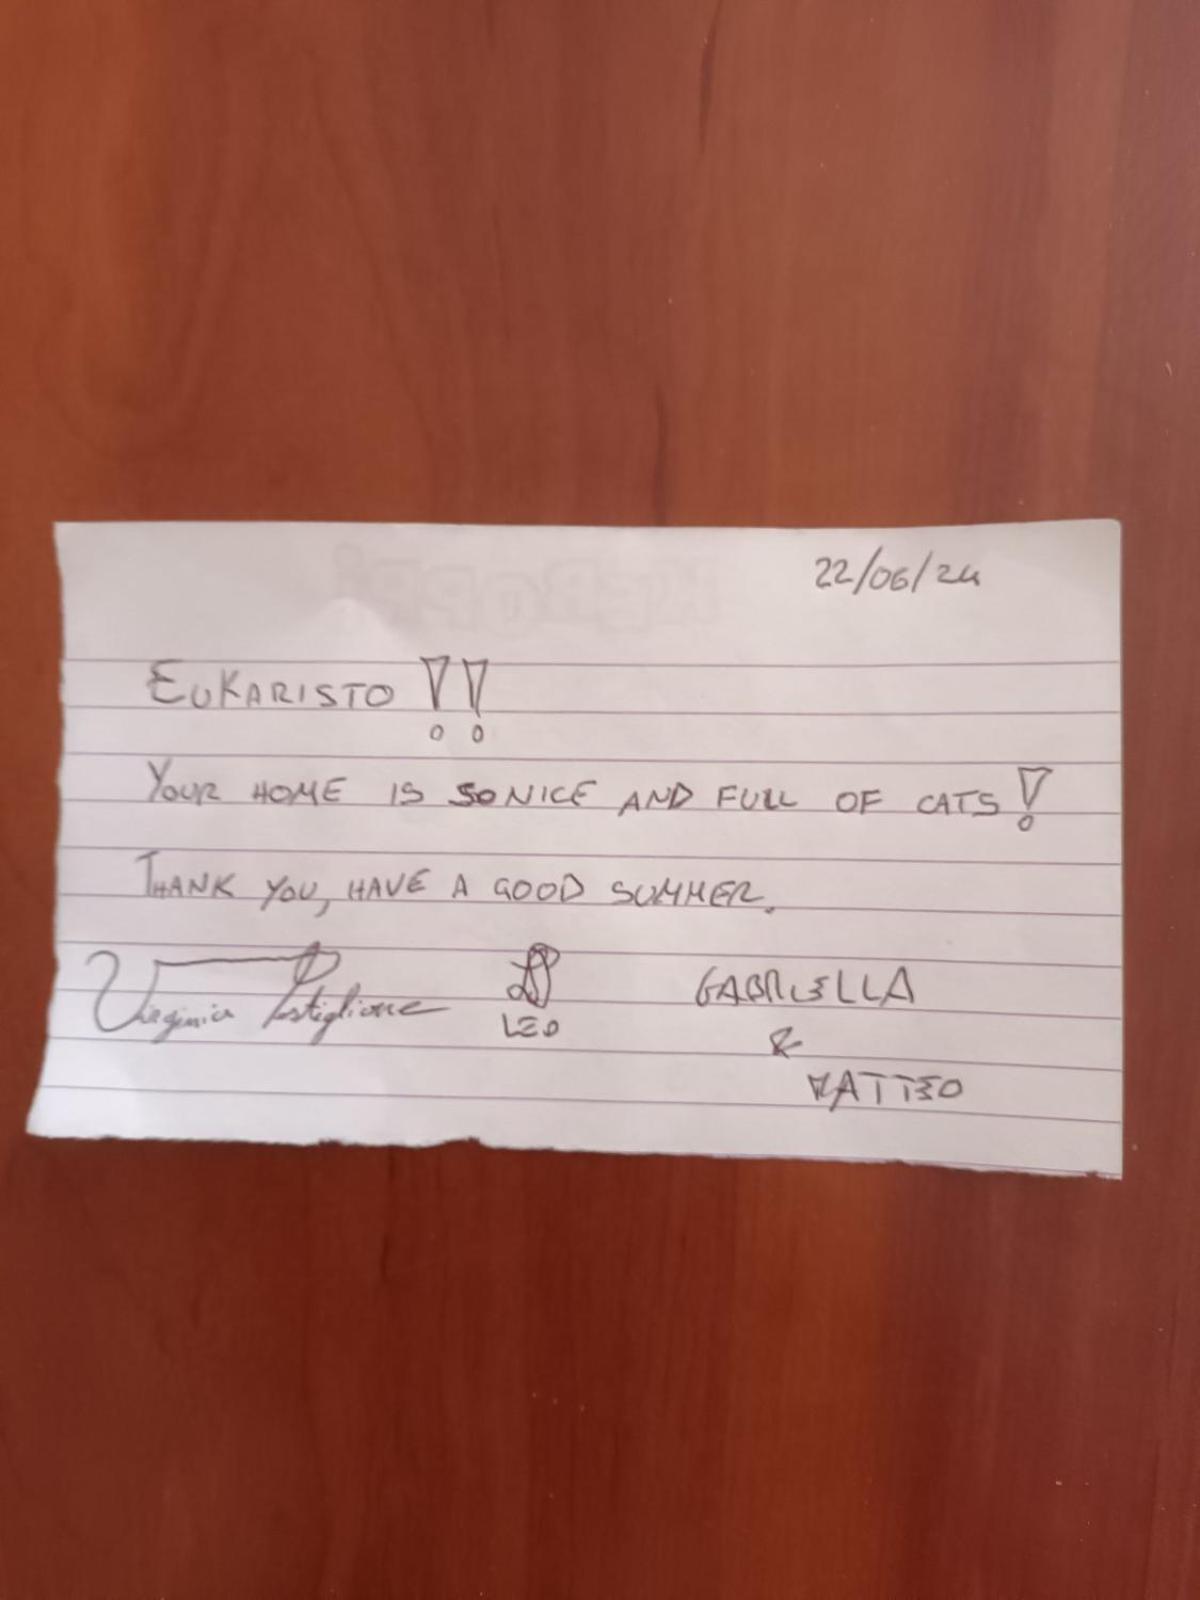 22/06/24
EUKARISTO !!
YOUR HOME IS SO NICE AND FULL OF CATS!
THANK YOU, HAVE A GOOD SUMMER.
Virginia
LEO
GABRIELLA
&
MATTEO